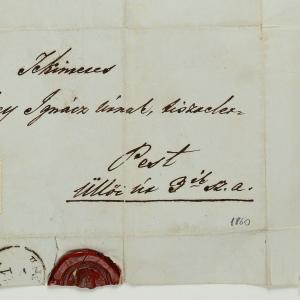 Tekintetes
Ignácz Úrnak, tisztelet-
Pest
Üllői út 3ik sz. a.
1860